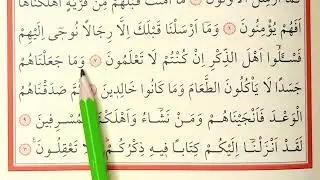 اَفَهُمْ يُؤْمِنُونَ ﴿٦﴾ وَمَٓا اَرْسَلْنَا قَبْلَكَ اِلَّا رِجَالًا نُوحٓى اِلَيْهِمْ
فَسْـَٔلُٓوا اَهْلَ الذِّكْرِ اِنْ كُنْتُمْ لَا تَعْلَمُونَ ﴿٧﴾ وَمَا جَعَلْنَاهُمْ
جَسَدًا لَا يَأْكُلُونَ الطَّعَامَ وَمَا كَانُوا خَالِدٖينَ ﴿٨﴾ ثُمَّ صَدَقْنَاهُمُ
الْوَعْدَ فَاَنْجَيْنَاهُمْ وَمَنْ نَشَٓاءُ وَاَهْلَكْنَا الْمُسْرِفٖينَ ﴿٩﴾
لَقَدْ اَنْزَلْنَٓا اِلَيْكُمْ كِتَابًا فٖيهِ ذِكْرُكُمْ اَفَلَا تَعْقِلُونَ ﴿١٠﴾